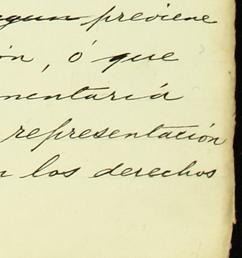 previene
ón, ó que
mentaria
representación
n los derechos